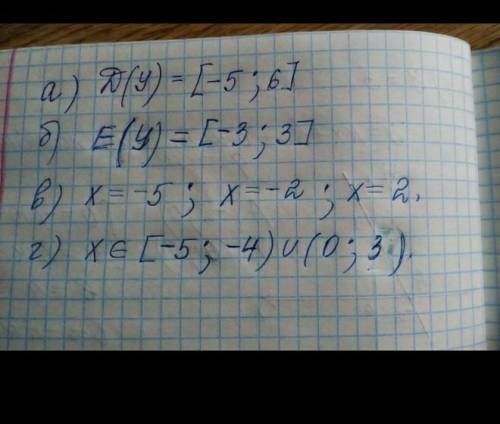 а) D(y) = [-5; 6]
б) E(y) = [-3; 3]
в) x = -5; x = -2; x = 2.
г) x ∈ [-5; -4) ∪ (0; 3).